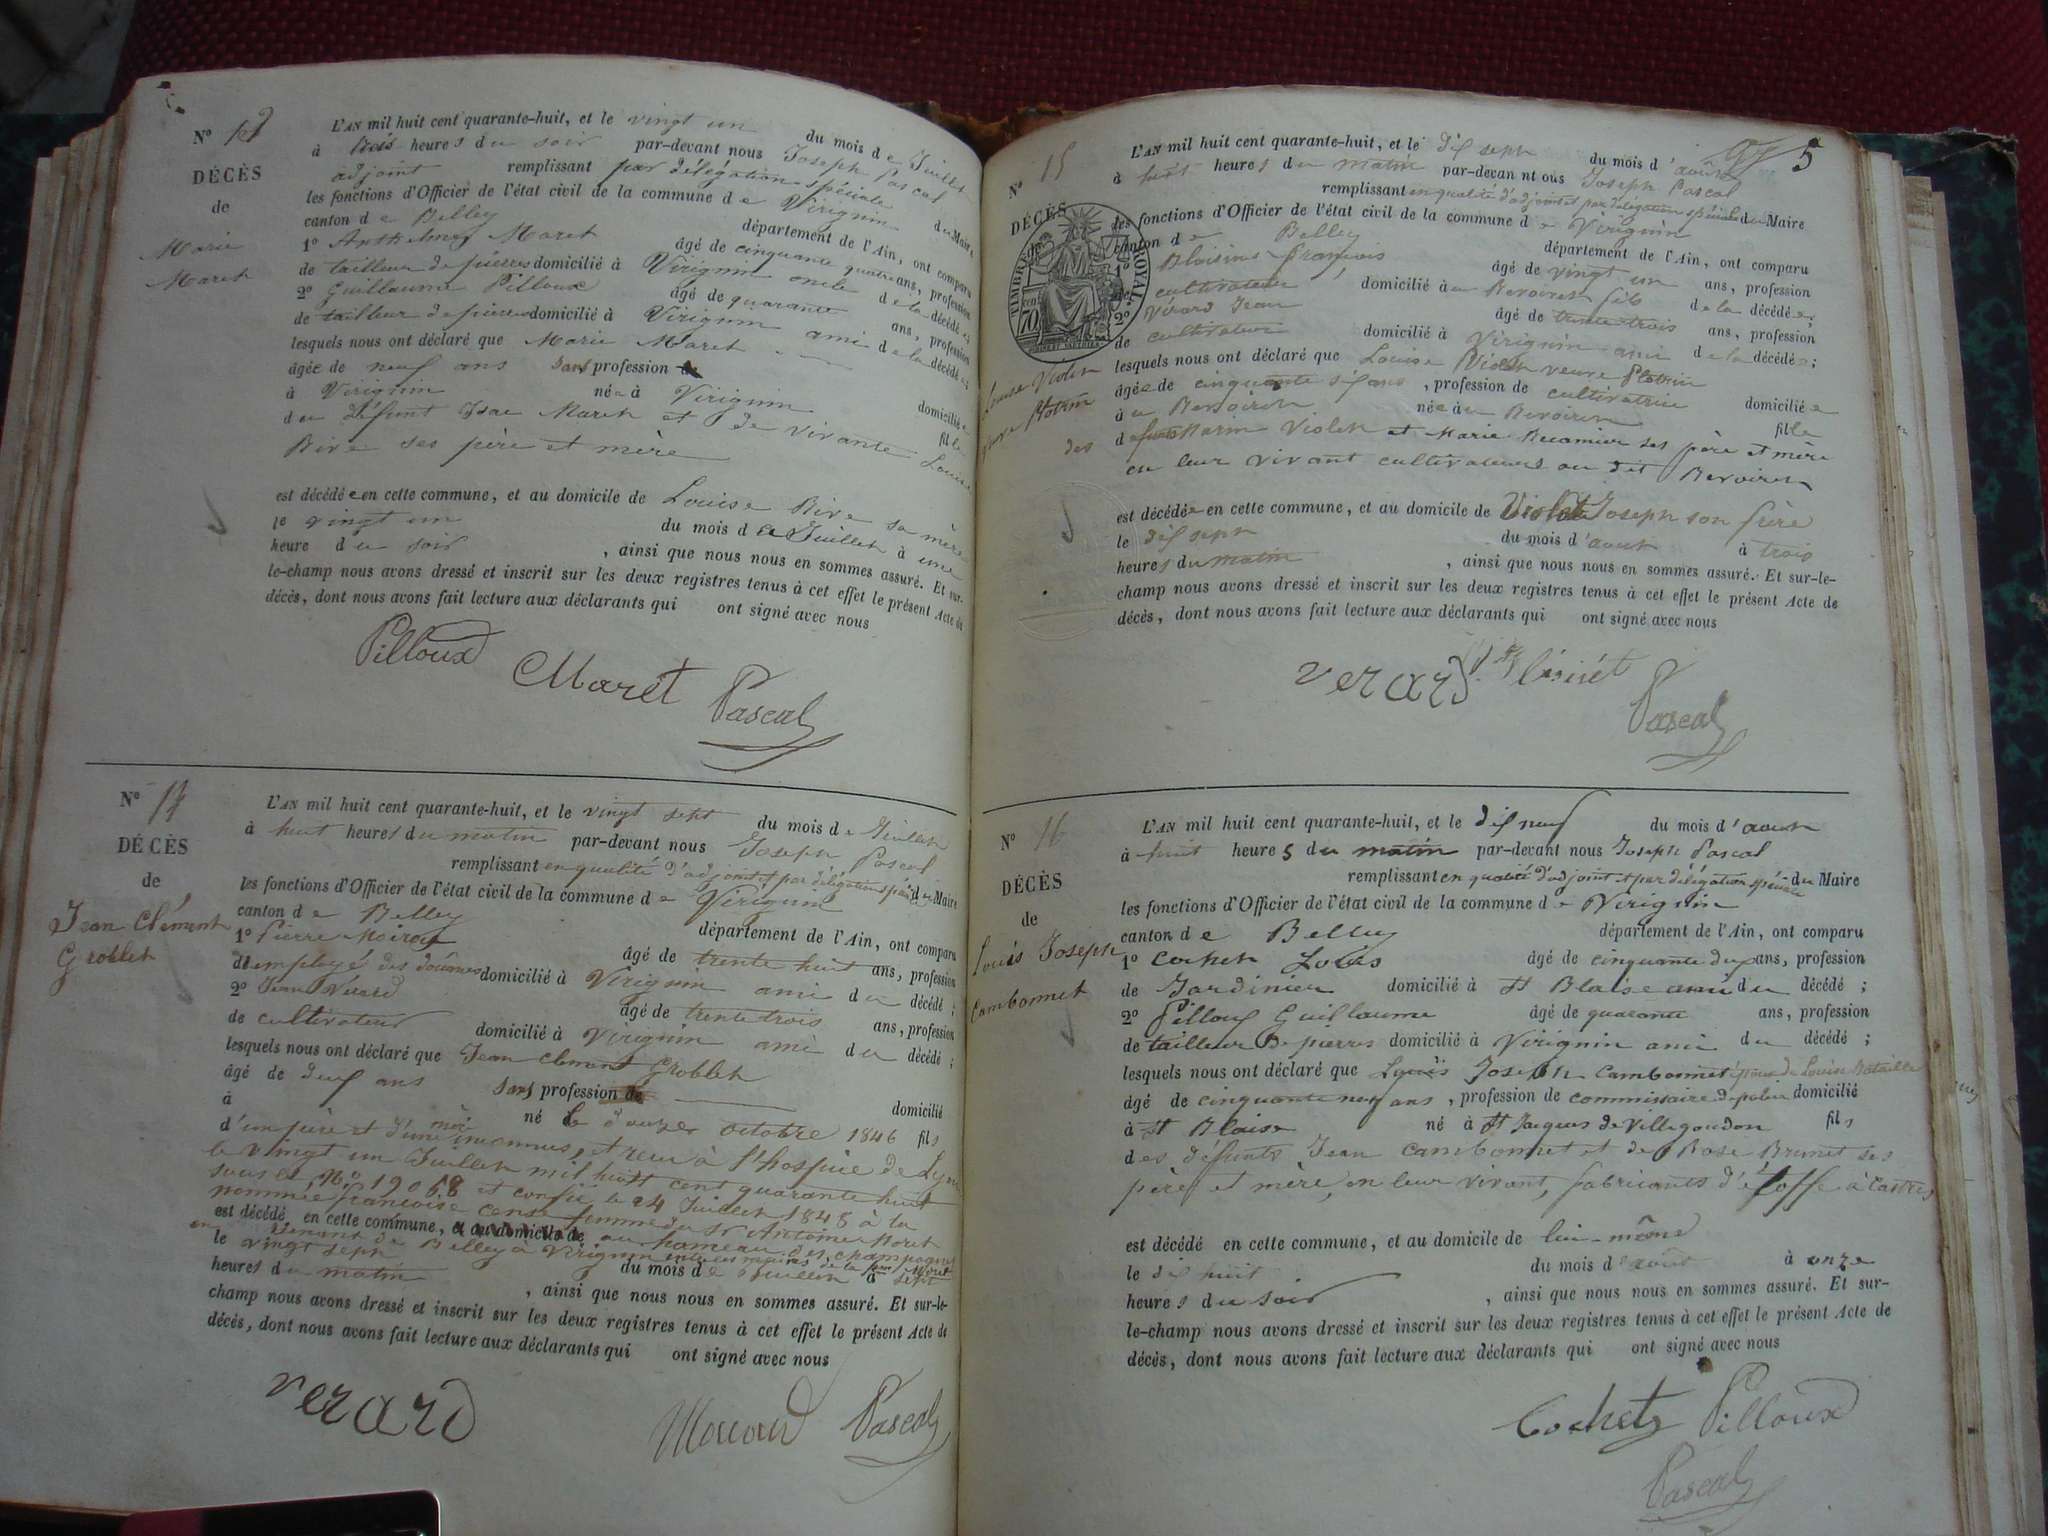 N° 13
DÉCÈS
de
Marie
Maret
L'AN mil huit cent quarante-huit, et le vingt un du mois de Juillet
à trois heures du soir par-devant nous Joseph Pascal
adjoint remplissant par délégation spéciale du Maire
les fonctions d'Officier de l'état civil de la commune de Virignin
canton de Belley département de l'Ain, ont comparu
1° Anthelme Maret âgé de cinquante quatre ans, profession
de tailleur de pierres domicilié à Virignin oncle de la décédée;
2° Guillaume Pilloux âgé de quarante ans, profession
de tailleur de pierres domicilié à Virignin ami de la décédée;
lesquels nous ont déclaré que Marie Maret
âgée de neuf ans sans profession
à Virignin née à Virignin domiciliée
du défunt Maret et de vivante Louise fille
Rive ses père et mère
est décédée en cette commune, et au domicile de Louise Rive sa mère
le vingt un du mois de Juillet à une
heure du soir, ainsi que nous nous en sommes assuré. Et sur-
le-champ nous avons dressé et inscrit sur les deux registres tenus à cet effet le présent Acte de
décès, dont nous avons fait lecture aux déclarants qui ont signé avec nous
Pilloux Maret Pascal
N° 14
DÉCÈS
de
Jean Clément
Groblet
L'AN mil huit cent quarante-huit, et le vingt sept du mois de Juillet
à huit heures du matin par-devant nous Joseph Pascal
remplissant en qualité d'adjoint et par délégation spéciale du Maire
les fonctions d'Officier de l'état civil de la commune de Virignin
canton de Belley département de l'Ain, ont comparu
1° Pierre âgé de trente huit ans, profession
d'employé des douanes domicilié à Virignin ami du décédé;
2° Jean Verard âgé de trente trois ans, profession
de cultivateur domicilié à Virignin ami du décédé;
lesquels nous ont déclaré que Jean Clement Groblet
âgé de deux ans sans profession de
à né le douze octobre 1846 domicilié
d'un père et d'une mère inconnus, et reçu à l'hospice de Lyon fils
le vingt un Juillet mil huit cent quarante huit
sous le N° 19068 et confié le 24 Juillet 1848 à la
nommée françoise femme du St Antoine
est décédé en cette commune, au domicile de au hameau des champagnes
en venant de Belley à Virignin entre les mains de la
le vingt sept du mois de Juillet à sept
heures du matin, ainsi que nous nous en sommes assuré. Et sur-le-
champ nous avons dressé et inscrit sur les deux registres tenus à cet effet le présent Acte de
décès, dont nous avons fait lecture aux déclarants qui ont signé avec nous
verard Pascal
5
N° 15
DÉCÈS
de
Louise Violet
veuve Plotrin
des
TIMBRE ROYAL
70
L'AN mil huit cent quarante-huit, et le dix sept du mois d'aout
à huit heures du matin par-devant nous Joseph Pascal
remplissant en qualité d'adjoint et par délégation spéciale du Maire
les fonctions d'Officier de l'état civil de la commune de Virignin
canton de Belley département de l'Ain, ont comparu
1° françois âgé de vingt un ans, profession
cultivateur domicilié à Bevoiret fils de la décédée;
2° Vérard Jean âgé de trente trois ans, profession
de cultivateur domicilié à Virignin ami de la décédée;
lesquels nous ont déclaré que Louise Violet veuve Plotrin
âgée de cinquante six ans, profession de cultivatrice domiciliée
à Bevoiret née à Bevoiret fille
défunts Marin Violet et Marie Recamier ses père et mère
en leur vivant cultivateurs au dit Bevoiret
est décédée en cette commune, et au domicile de Violet Joseph son frère
le dix sept du mois d'aout à trois
heures du matin, ainsi que nous nous en sommes assuré. Et sur-le-
champ nous avons dressé et inscrit sur les deux registres tenus à cet effet le présent Acte de
décès, dont nous avons fait lecture aux déclarants qui ont signé avec nous
verard Pascal
N° 16
DÉCÈS
de
Louis Joseph
Cambonnet
L'AN mil huit cent quarante-huit, et le dix neuf du mois d'aout
à huit heures du matin par-devant nous Joseph Pascal
remplissant en qualité d'adjoint et par délégation spéciale du Maire
les fonctions d'Officier de l'état civil de la commune de Virignin
canton de Belley département de l'Ain, ont comparu
1° Cochet Louis âgé de cinquante deux ans, profession
de Jardinier domicilié à St Blaise ami du décédé;
2° Pilloux Guillaume âgé de quarante ans, profession
de tailleur de pierres domicilié à Virignin ami du décédé;
lesquels nous ont déclaré que Louis Joseph Cambonnet époux de Louise Bataille
âgé de cinquante neuf ans, profession de commissaire de police domicilié
à St Blaise né à St Jacques de Villegoudon fils
des défunts Jean Cambonnet et de Rose Brunet ses
père et mère, en leur vivant, fabricants d'étoffe à Castres
est décédé en cette commune, et au domicile de lui-même
le dix huit du mois d'aout à onze
heures du soir, ainsi que nous nous en sommes assuré. Et sur-
le-champ nous avons dressé et inscrit sur les deux registres tenus à cet effet le présent Acte de
décès, dont nous avons fait lecture aux déclarants qui ont signé avec nous
Cochet Pilloux
Pascal